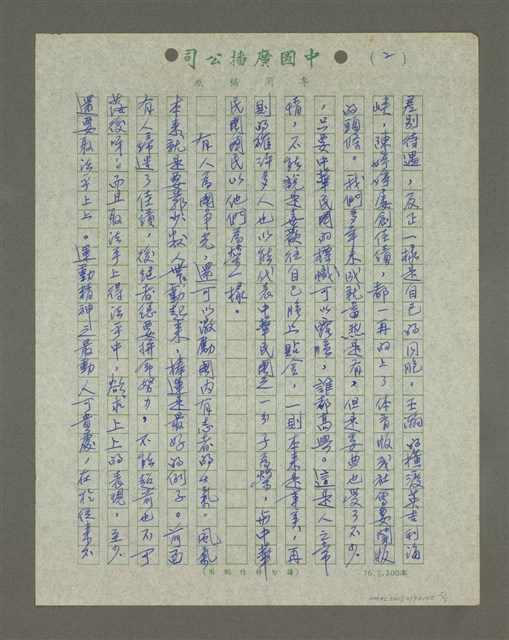 中國廣播公司
(2)
專用稿紙
差別待遇，反正一樣是自己的同胞。王瀚的橫渡英吉利海
峽，陳婷婷屢創佳績，都一再的上了体育版或社會要聞版
的頭條。我們多年來成就當然是有，但是委曲也受了不少
，只要中華民國的旗幟可以露臉，誰都高興。這是人之常
情，不能說是喜歡往自己臉上貼金，一則本來是事實，再
則的確許多人也以能代表中華民國之一份子為榮，與中華
民國國民以他們為榮一樣。
有人為國爭光，還可以激勵國內有志者的士氣。風氣
本來就是要靠少數人帶動起來，棒運是最好的例子。前面
有人締造了佳績，後繼者總要拼命努力，不能超前也不可
落後呀。而且取法乎上得法乎中，欲求上上的表現，至少
還要取法乎上上。運動精神之最動人可貴處，在於從來不
76.5.200本